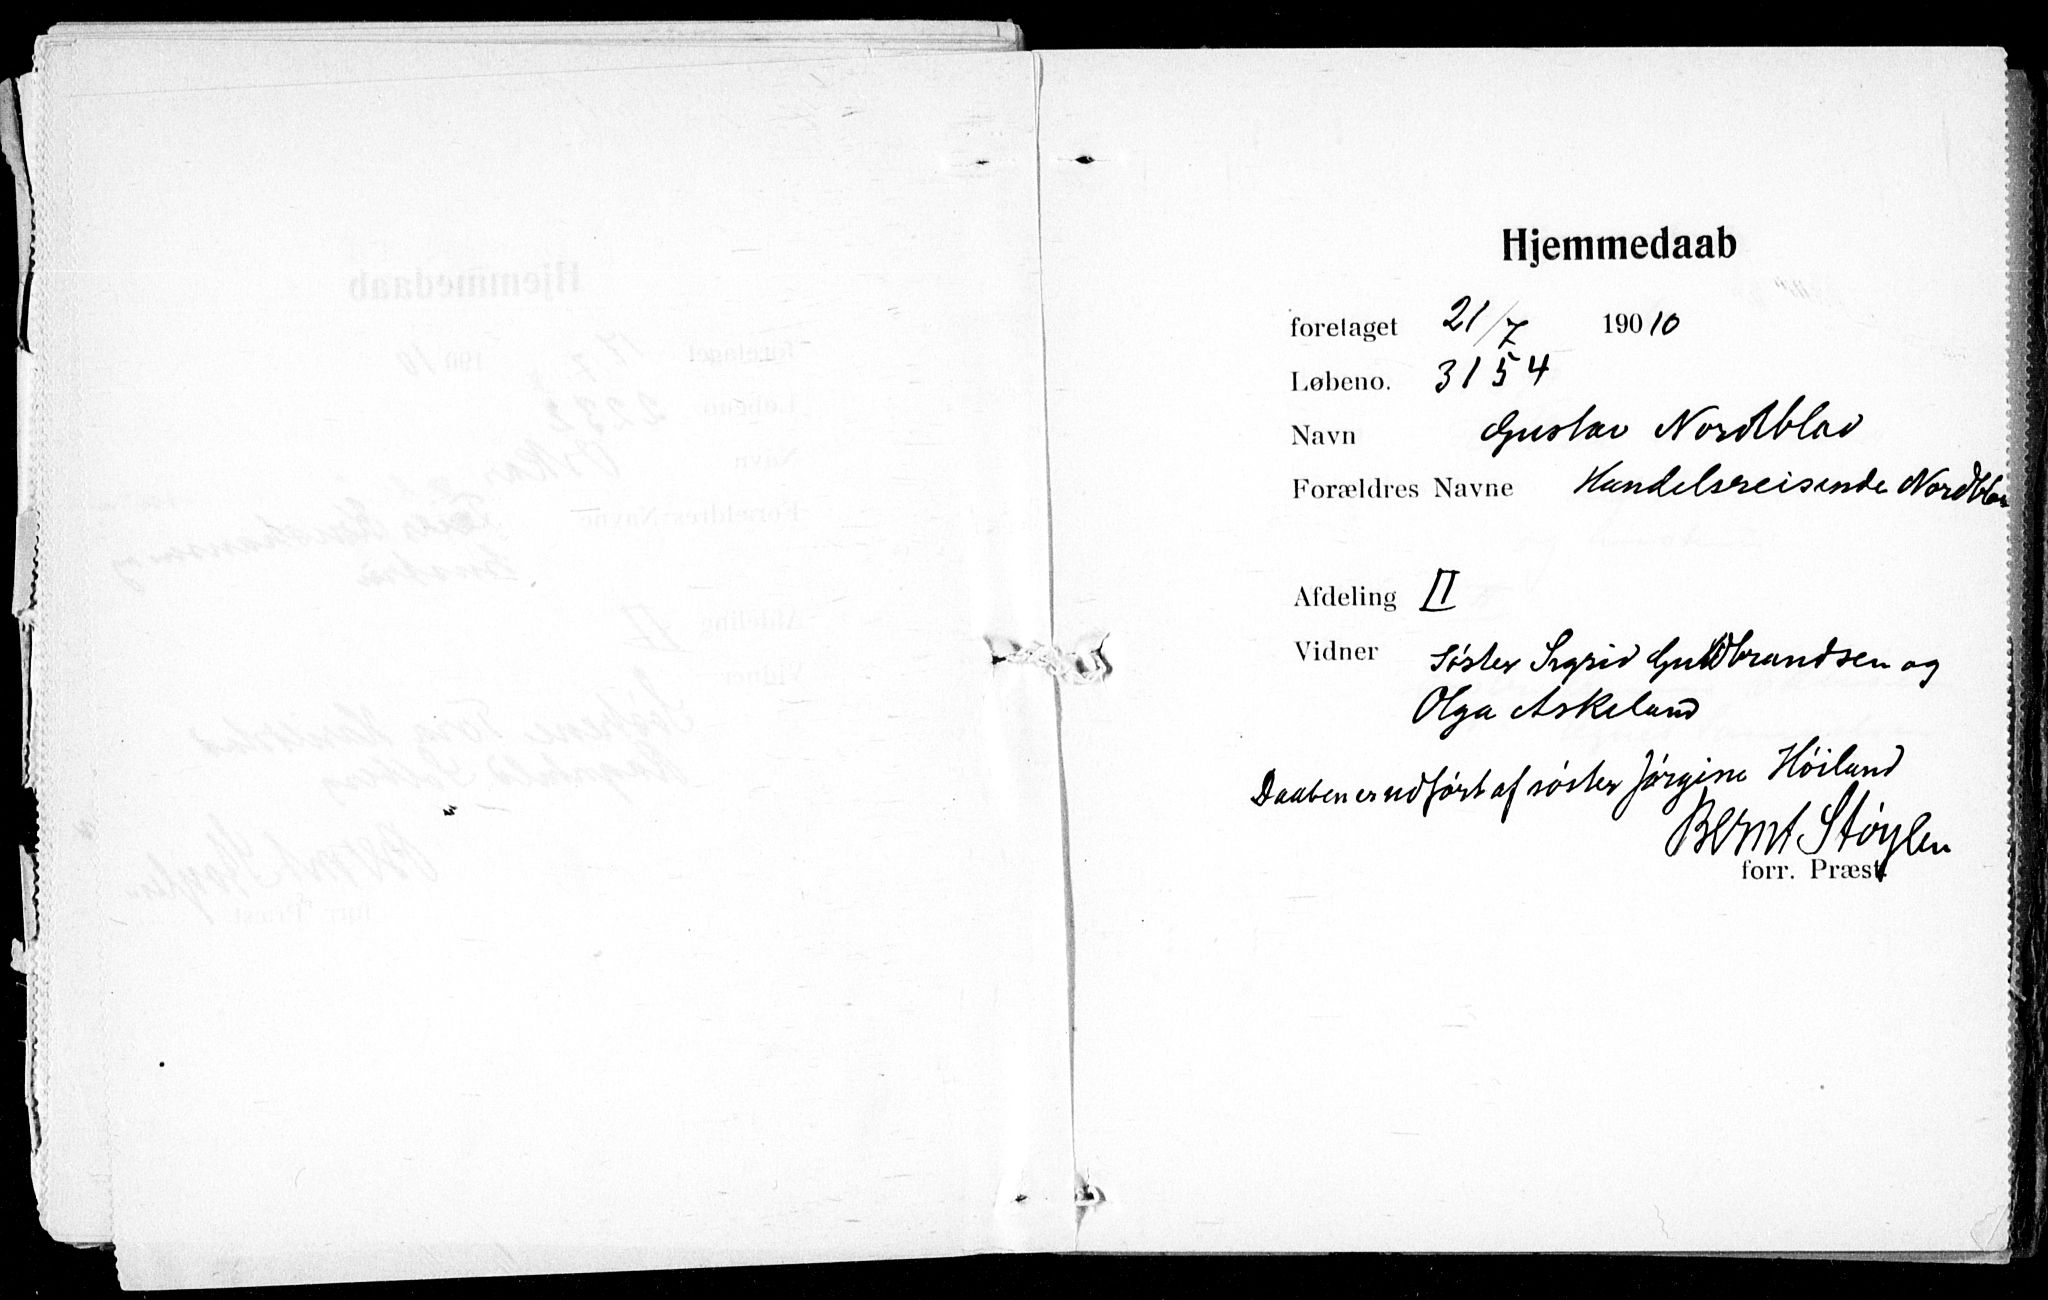 Hjemmedaab
foretaget 21/7 190 10
Løbeno. 3154
Navn Gustav Nordblad
Forældres Navne Handelsreisende Nordblad
Afdeling II
Vidner Søster Sigrid Guldbrandsen og
Olga Askeland
Daaben er udført af søster Jørgine Høiland
Bernt Støylen
forr. Præst.